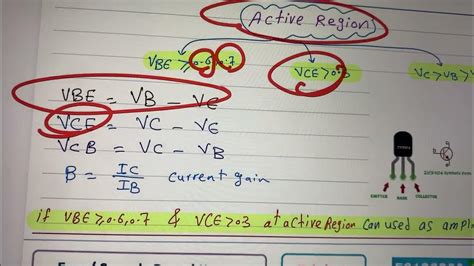 Active Region
VBE ≥ 0.6, 0.7
VCE > 0.3
VC > VB >
VBE = VB - VE
VCE = VC - VE
VCB = VC - VB
B = IC/IB current gain
EMITTER BASE COLLECTOR
if VBE ≥ 0.6, 0.7 & VCE > 03 at active Region Can used as ampl